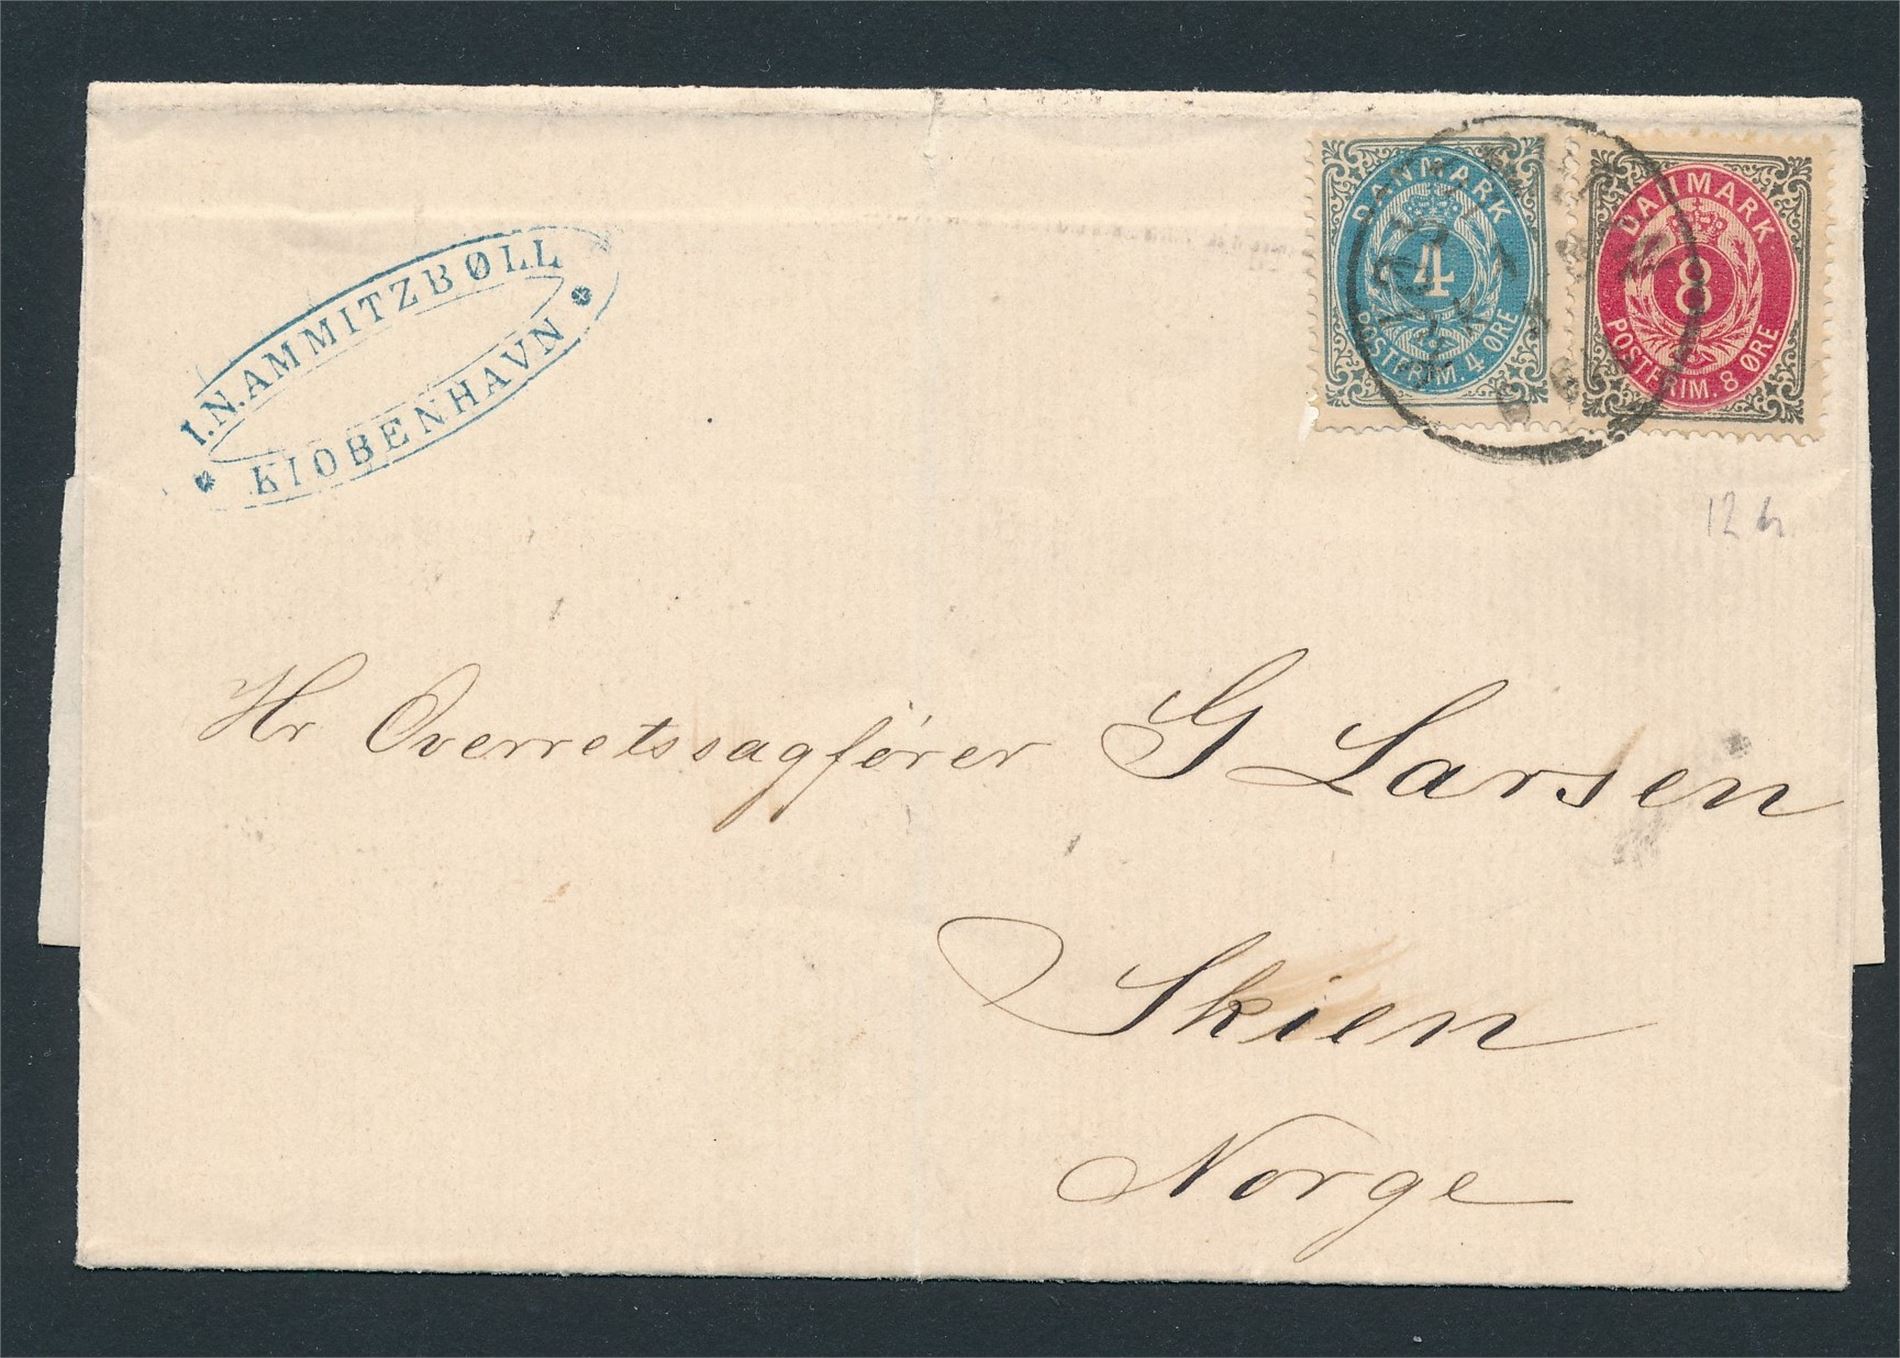 I.N.AMMITZBØLL
KIOBENHAVN
DANMARK
4
POSTFRIM. 4 ØRE
DANMARK
8
POSTFRIM. 8 ØRE
12
Hr Overretssagfører G Larsen
Skien
Norge